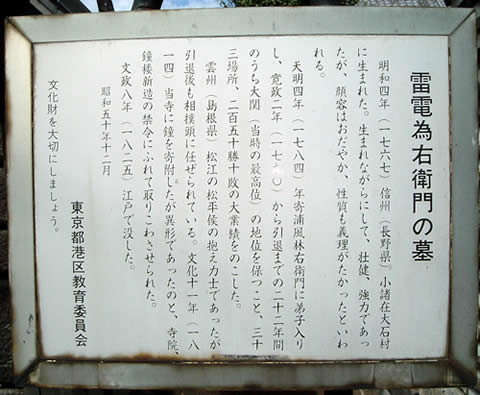 雷電為右衛門の墓
明和四年(一七六七)信州(長野県)小諸在大石村
に生まれた。生まれながらにして、壮健、強力であっ
たが、顔容はおだやか、性質も義理がたかったといわ
れる。
天明四年(一七八四)年寄浦風林右衛門に弟子入り
し、寛政二年(一七九〇)から引退までの二十二年間
のうち大関(当時の最高位)の地位を保つこと、三十
三場所、二百五十勝十敗の大業績をのこした。
雲州(島根県)松江の松平侯の抱え力士であったが
引退後も相撲頭に任ぜられている。文化十一年(一八
一四)当寺に鐘を寄附したが異形であったのと、寺院、
鐘楼新造の禁令にふれて取りこわさせられた。
文政八年(一八二五)江戸で没した。
昭和五十年十二月
東京都港区教育委員会
文化財を大切にしましょう。